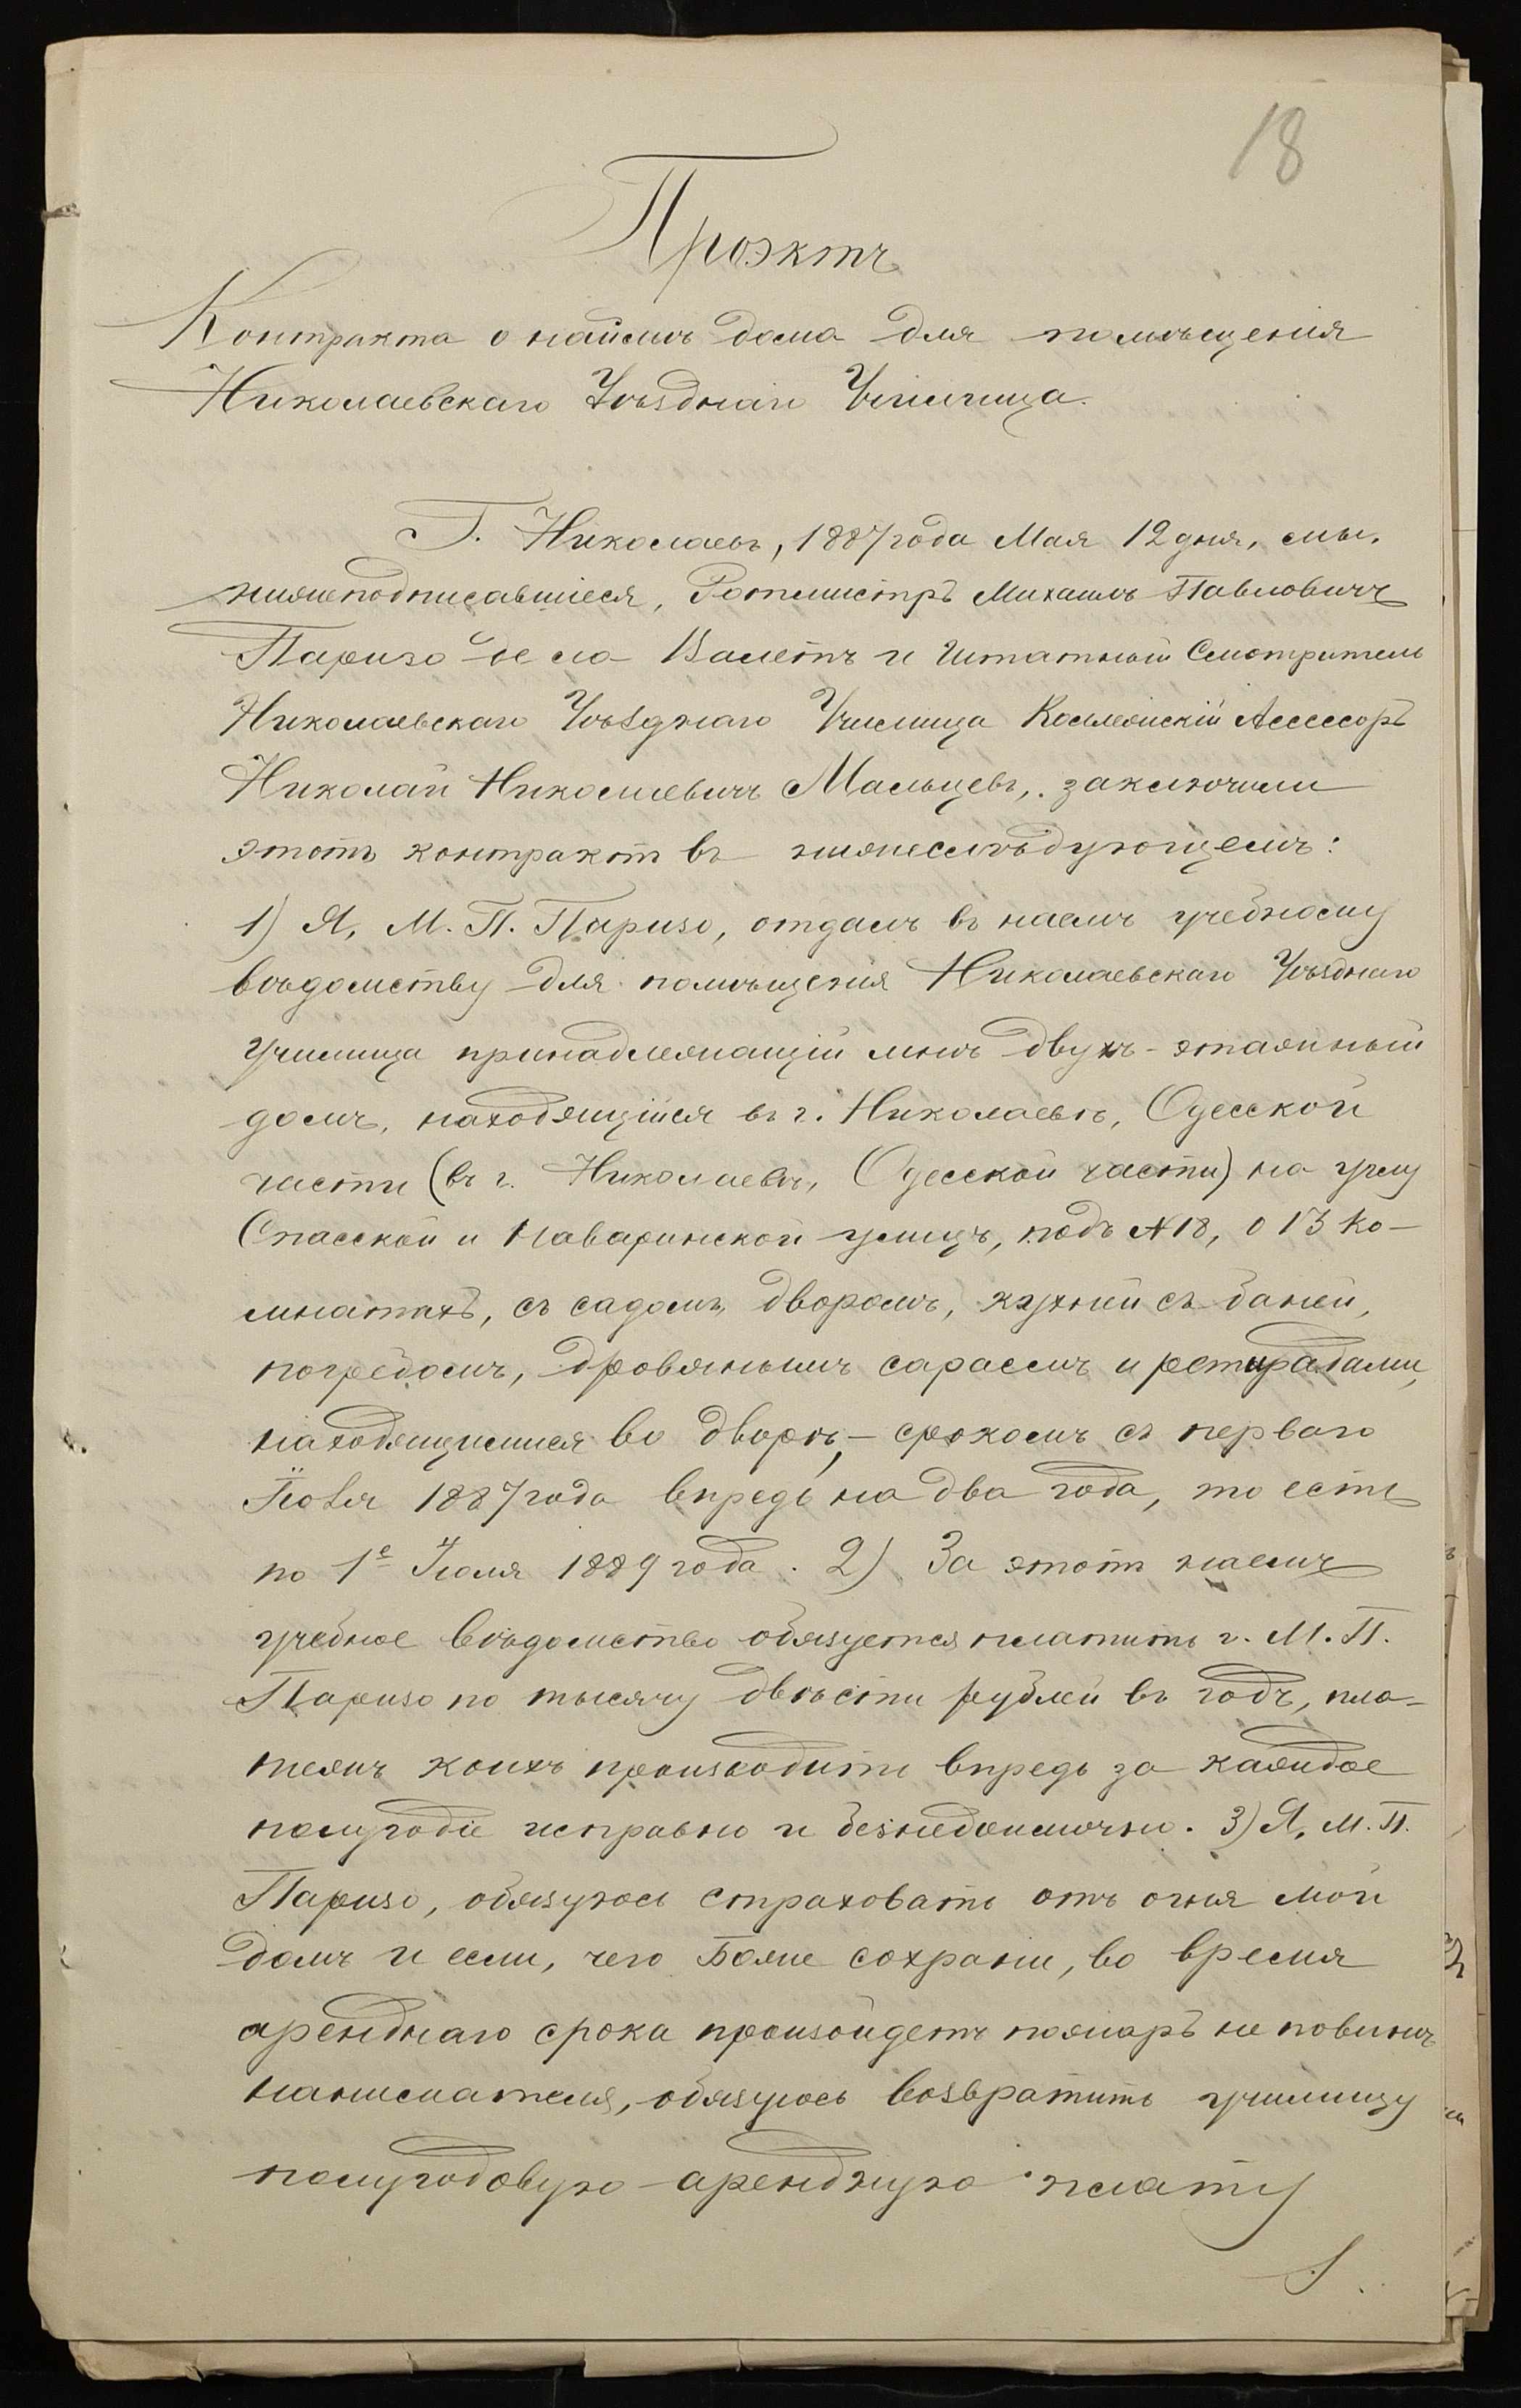 18
Проэктъ
Контракта о наймѣ дома для помѣщенія
Николаевскаго Уѣзднаго Училища.
Г. Николаевъ, 1887 года Мая 12 дня, мы,
нижеподписавшіеся, Ротмистръ Михаилъ Павловичъ
Паризо де ла Валетъ и Штатный Смотритель
Николаевскаго Уѣзднаго Училища Коллежскій Ассесоръ
Николай Николаевичъ Мальцевъ, заключили
этотъ контрактъ въ нижеслѣдующемъ:
1) Я, М. П. Паризо, отдалъ въ наемъ учебному
вѣдомству для помѣщенія Николаевскаго Уѣзднаго
Училища принадлежащій мнѣ двухъ-этажный
домъ, находящійся въ г. Николаевѣ, Одесской
части (въ г. Николаевѣ, Одесской части) на углу
Спасской и Наваринской улицъ, подъ №18, о 13 ко-
мнатахъ, съ садомъ, дворомъ, кухней съ баней,
погребомъ, дровянымъ сараемъ и ретирадами,
находящимися во дворѣ, - срокомъ съ перваго
Іюля 1887 года впредь на два года, то есть
по 1е Іюля 1889 года. 2) За этотъ наемъ
учебное вѣдомство обязуется платить г. М. П.
Паризо по тысячу двѣсти рублей въ годъ, пла-
тежъ коихъ производить впредь за каждое
полугодіе исправно и безнедоимочно. 3) Я, М. П.
Паризо, обязуюсь страховать отъ огня мой
домъ и если, чего Боже сохрани, во время
аренднаго срока произойдетъ пожаръ не по винѣ
нанимателя, обязуюсь возвратить училищу
полугодовую арендную плату